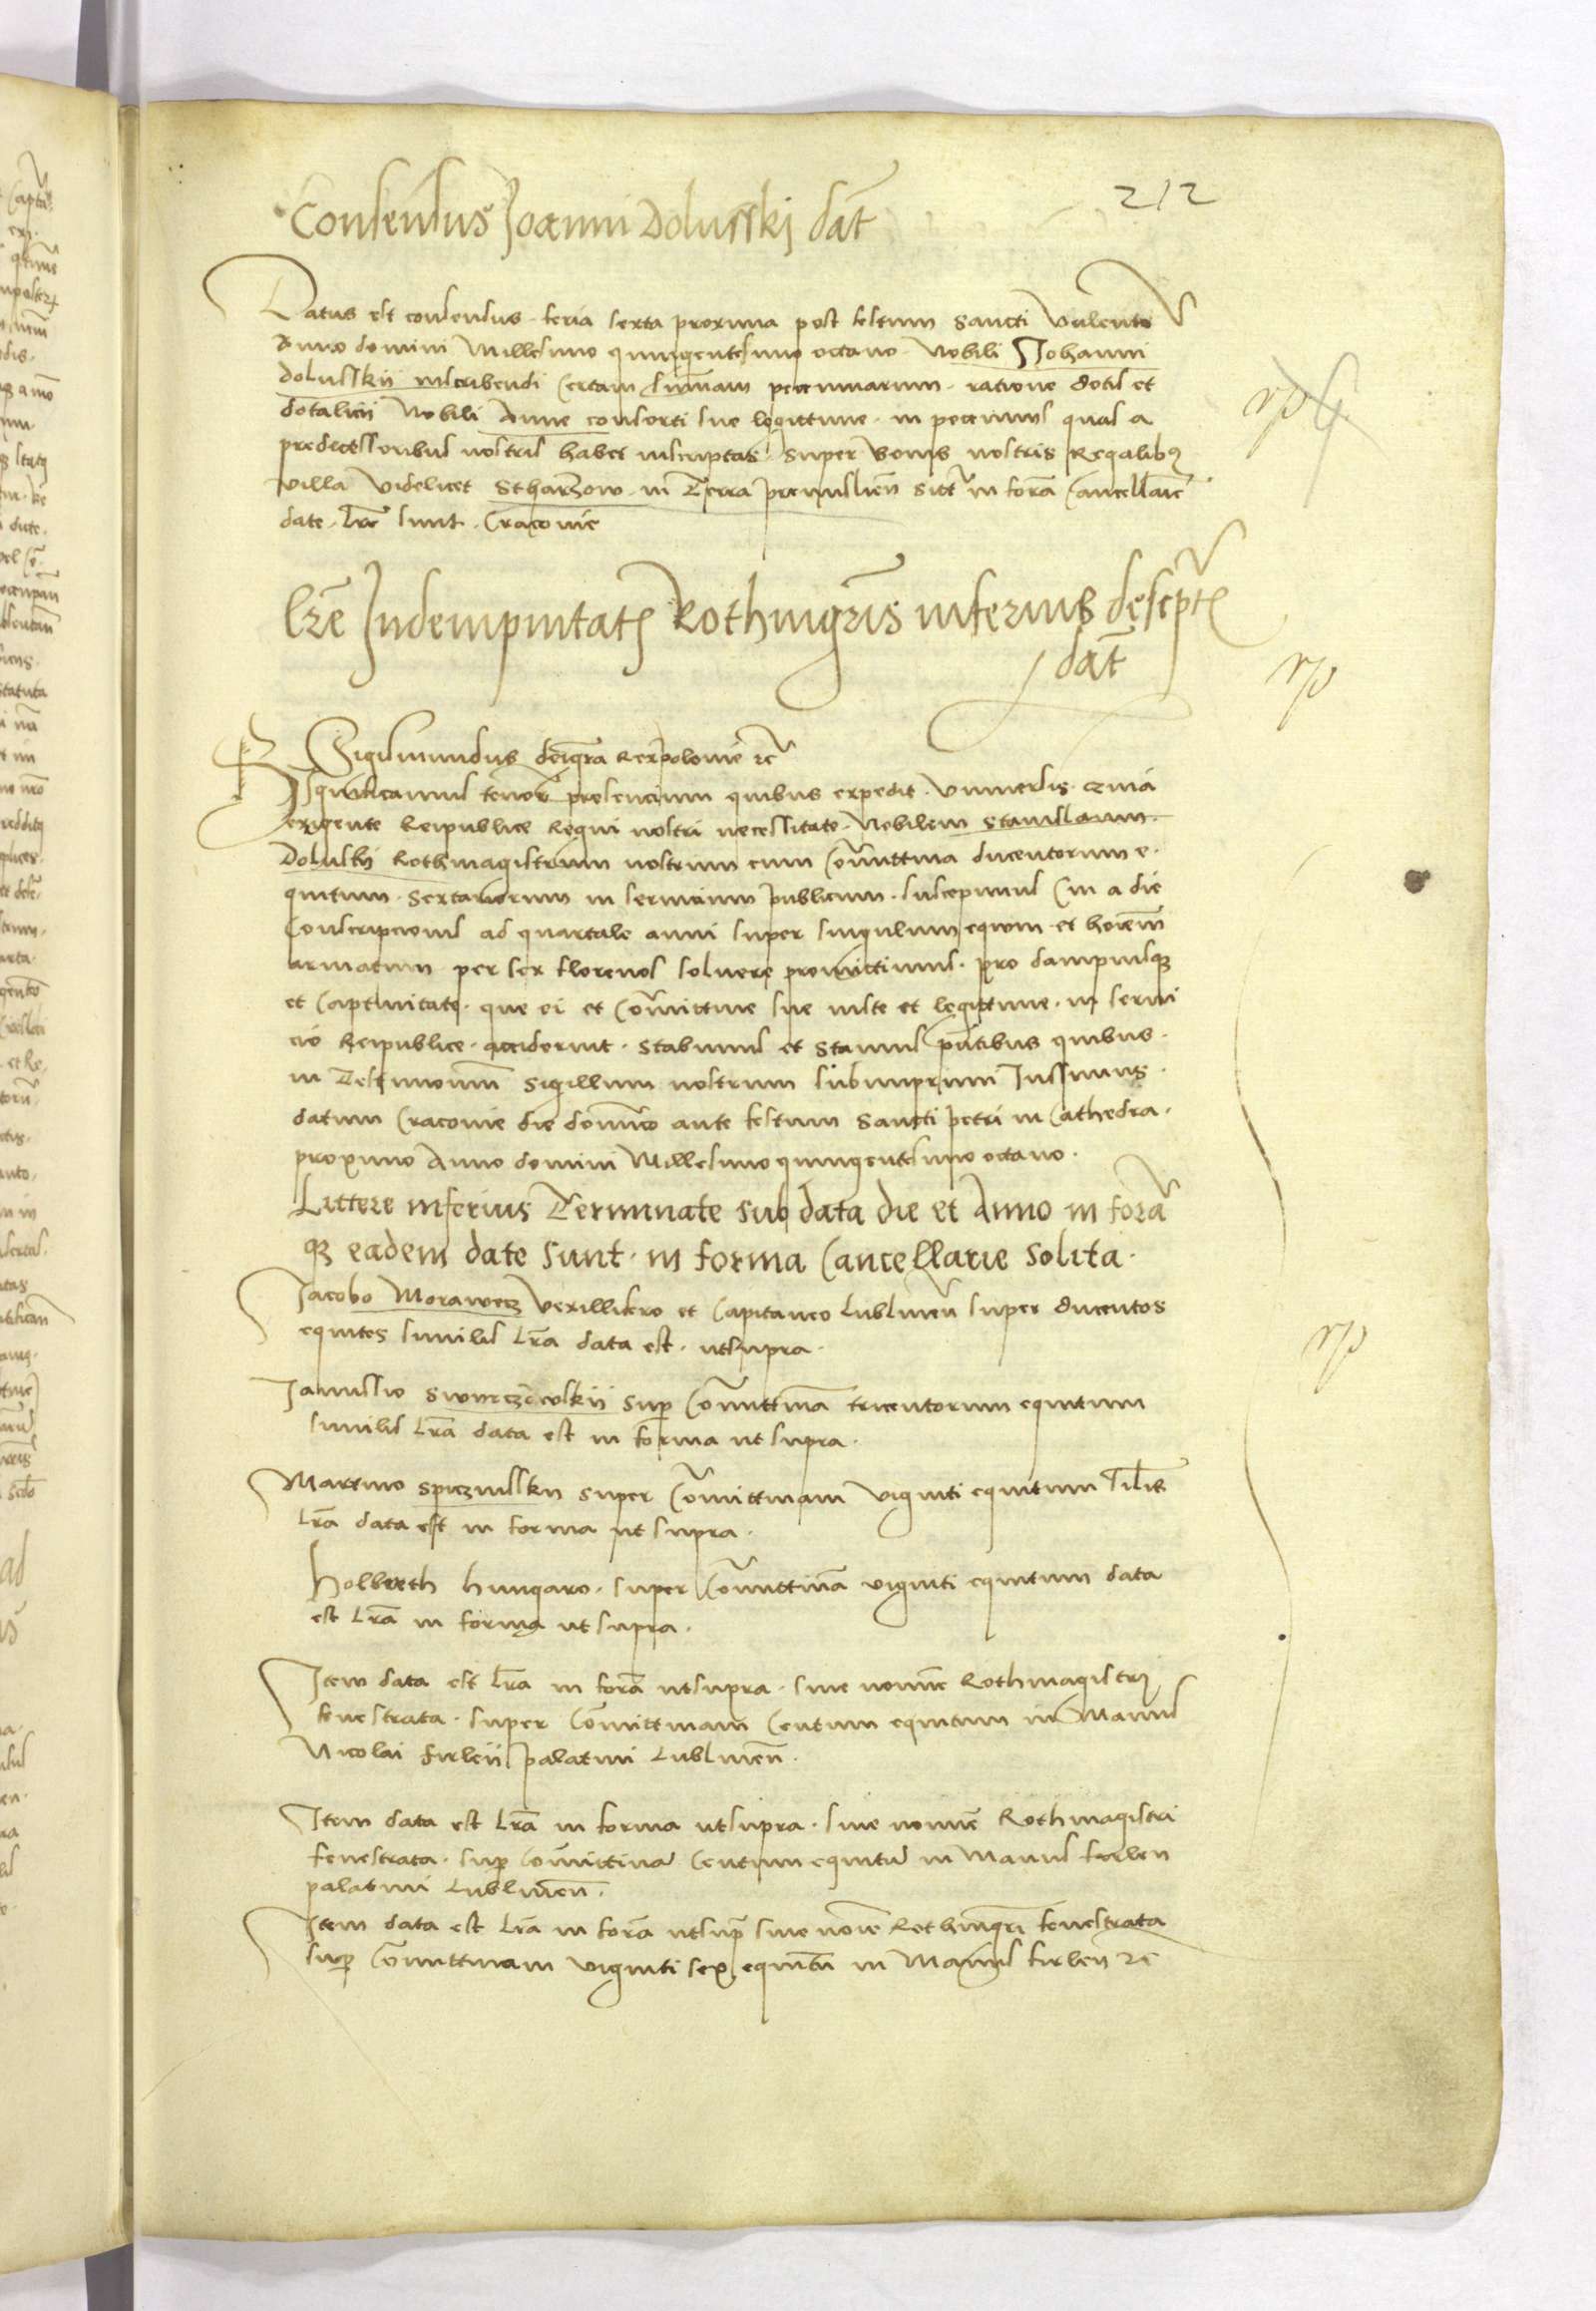 212
Consensus Joanni Dolusski dat̄
Datus est consensus feria sexta proxima post festum Sancti Valenti
Anno domini Millesimo quingentesimo octavo Nobili Johanni
Dolusskii inscribendi certam summam pecuniarum ratione dotis et
dotalicii Nobili Anne consorti sue legittime in pecuniis quas a
predecessoribus nostris habet inscriptas super bonis nostris Regalibus
villa videlicet Stharzow in Terra premislien̄ sitt in form̄a Cancellarie
date lr̄e sunt Cracovie
lr̄e Indempnitatis Rothmgr̄is inferius descriptis
dat̄
Sigismundus dei gr̄a Rex polonie ēc
Significamus tenore presencium quibus expedit universis Quia
exigente Reipublice Regni nostri necessitate Nobilem Stanislaum
Doluskij Rothmagistrum nostrum cum Com̄ittiva ducentorum e
quitum Sextariorum in servicium publicum suscepimus Cui a die
Conscripcionis ad quartale anni super singulum equum et hoīem
armatum per sex florenos solvere promittimus pro dampnisq̨
et Captivitate que ei et Com̄ittive sue iuste et legittime in servi
cio Reipublice acciderint stabimus et stamus pn̄tibus quibus
in Testimonium Sigillum nostrum subimprimi Iussimus
datum Cracovie die domīco ante festum Sancti petri in Cathedra
proximo Anno domini Millesimo quingentesimo octavo
Littere inferius Terminate sub data die et Anno in form̄a
q̨ eadem date sunt in forma Cancellarie solita
Jacobo Morawecz Vexillifero et Capitaneo Lublinen̄ super ducentos
equites similis lr̄a data est ut supra
Janussio Swyrczewskii sup Com̄ittivam̄ tricentorum equitum
similis lr̄a data est in forma ut supra
Martino Spiczinsskii super Com̄ittivam viginti equitum sil̄is
lr̄a data est in forma ut supra
Holbreth hungaro super Com̄ittivā viginti equitum data
est lr̄a in forma ut supra
Item data est lr̄a in form̄a ut supra sine nomīe Rothmagistri
fenestrata super Com̄ittivam Centum equitum in Manus
Nicolai firleii palatini Lublinen̄
Item data est lr̄a in forma ut supra sine nomīe Rothmagistri
fenestrata sup Com̄ittiva Centum equitu in Manus firleii
palatini Lublinen̄
Item data est lr̄a in form̄a ut sup̄ sine noīe Rothmgr̄i fenestrata
sup Com̄ittivam viginti sex equitū in Manus firleii ēc